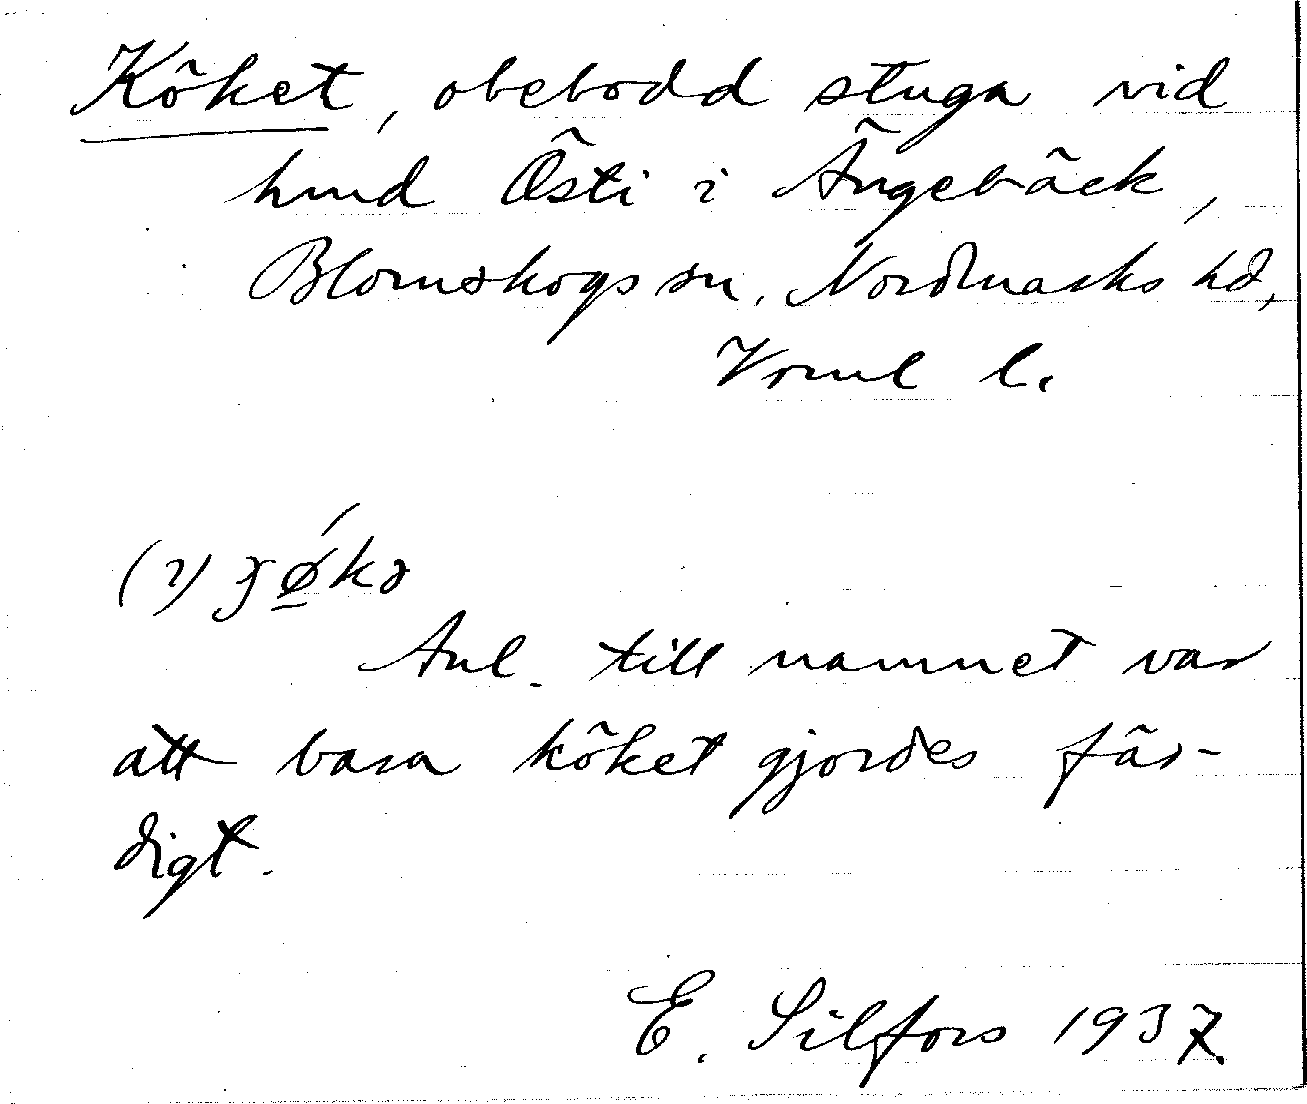 Köket, obebodd stuga vid
hmd Östi i Ängebäck,
Blomskogs sn, Nordmarks hd,
Vrml l.
(i)
Anl. till namnet var
att bara köket gjordes fär-
digt.
E. Silfors 1937.